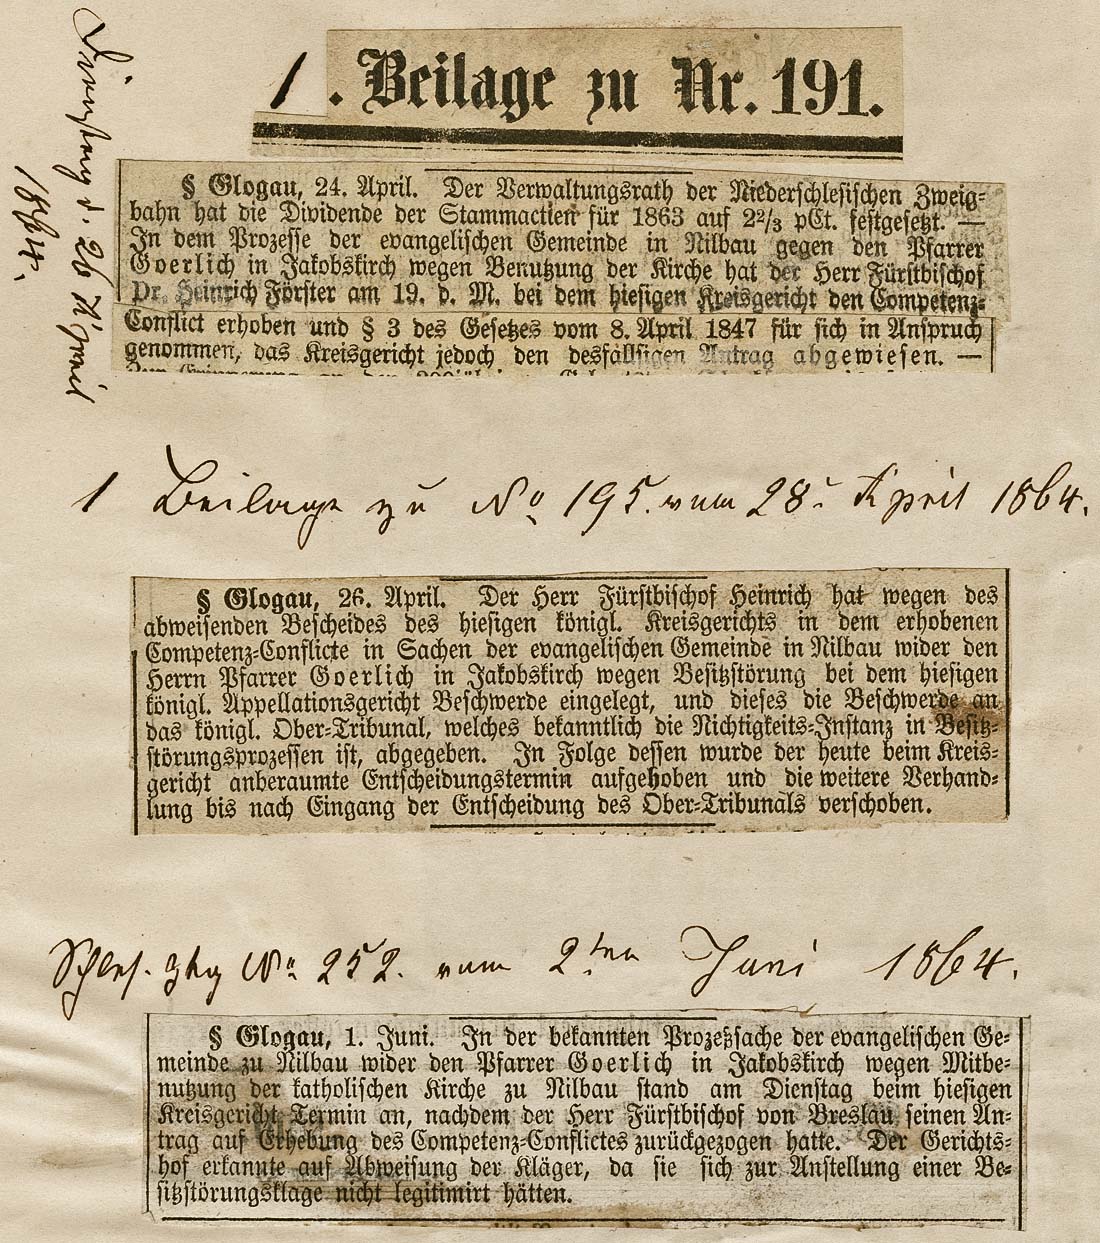 1. Beilage zu Nr. 191.
Dienstag d. 26 April
1864.
§ Glogau, 24. April. Der Verwaltungsrath der Niederschlesischen Zweig-
bahn hat die Dividende der Stammactien für 1863 auf 2²/₃ pCt. festgesetzt. —
In dem Prozesse der evangelischen Gemeinde in Nilbau gegen den Pfarrer
Goerlich in Jakobskirch wegen Benutzung der Kirche hat der Herr Fürstbischof
Dr. Heinrich Förster am 19. d. M. bei dem hiesigen Kreisgericht den Competenz-
Conflict erhoben und § 3 des Gesetzes vom 8. April 1847 für sich in Anspruch
genommen, das Kreisgericht jedoch den desfallsigen Antrag abgewiesen. —
1 Beilage zu No 195. vom 28. April 1864.
§ Glogau, 26. April. Der Herr Fürstbischof Heinrich hat wegen des
abweisenden Bescheides des hiesigen königl. Kreisgerichts in dem erhobenen
Competenz-Conflicte in Sachen der evangelischen Gemeinde in Nilbau wider den
Herrn Pfarrer Goerlich in Jakobskirch wegen Besitzstörung bei dem hiesigen
königl. Appellationsgericht Beschwerde eingelegt, und dieses die Beschwerde an
das königl. Ober-Tribunal, welches bekanntlich die Nichtigkeits-Instanz in Besitz-
störungsprozessen ist, abgegeben. In Folge dessen wurde der heute beim Kreis-
gericht anberaumte Entscheidungstermin aufgehoben und die weitere Verhand-
lung bis nach Eingang der Entscheidung des Ober-Tribunals verschoben.
Schles. Ztg No 252. vom 2ten Juni 1864.
§ Glogau, 1. Juni. In der bekannten Prozeßsache der evangelischen Ge-
meinde zu Nilbau wider den Pfarrer Goerlich in Jakobskirch wegen Mitbe-
nutzung der katholischen Kirche zu Nilbau stand am Dienstag beim hiesigen
Kreisgericht Termin an, nachdem der Herr Fürstbischof von Breslau seinen An-
trag auf Erhebung des Competenz-Conflictes zurückgezogen hatte. Der Gerichts-
hof erkannte auf Abweisung der Kläger, da sie sich zur Anstellung einer Be-
sitzstörungsklage nicht legitimirt hätten.